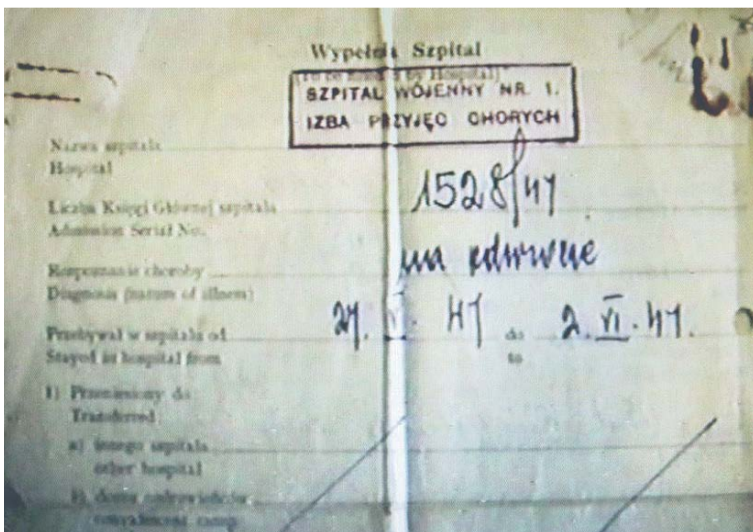 Wypełnia Szpital
(To be filled by Hospital)
SZPITAL WOJENNY NR. 1.
IZBA PRZYJĘĆ CHORYCH
Nazwa szpitala
Hospital
Liczba Księgi Głównej szpitala 1528/41
Admission Serial No.
Rozpoznanie choroby na odwrocie
Diagnosis (nature of illness)
Przebywał w szpitalu od 27. V. 41 do 2. VI. 41.
Stayed in hospital from to
1) Przeniesiony do
Transferred
a) innego szpitala
other hospital
b) domu ozdrowieńców
convalescent camp